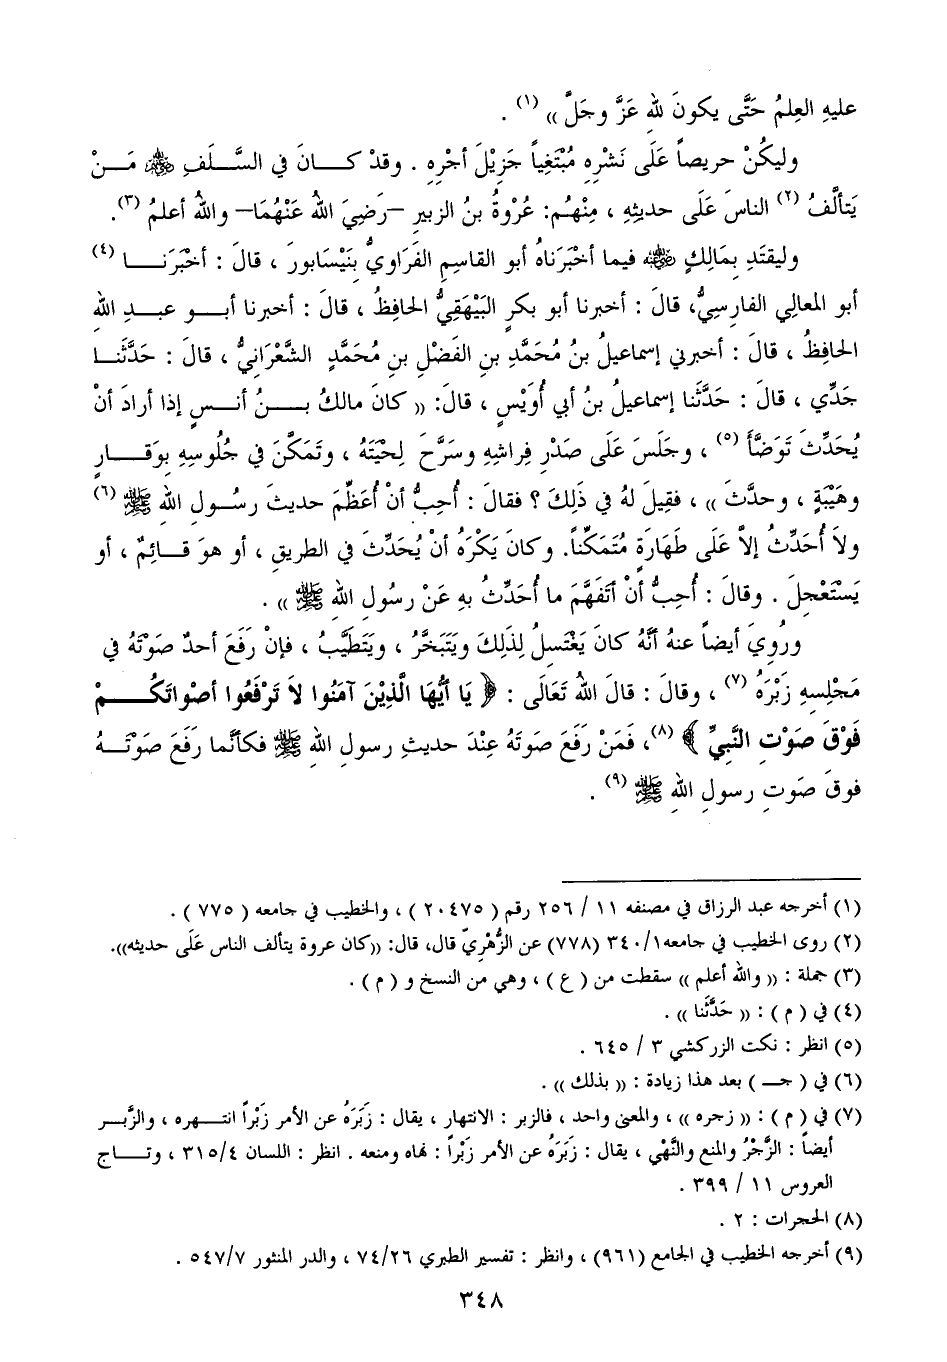 عليهِ العِلمُ حَتَّى يكونَ للهِ عَزَّ وجَلَّ » (١) .
وليكُنْ حريصاً عَلَى نَشْرِهِ مُبْتَغِياً جَزِيْلَ أجْرِهِ . وقدْ كـانَ في السَّـلَفِ ﷺ مَـنْ
يَتألَّفُ (٢) الناسَ عَلَى حديثِهِ ، مِنْهُم: عُرْوَةُ بنُ الزبيرِ –رَضِيَ اللهُ عَنْهُمَا– واللهُ أعلمُ (٣).
وليقتَدِ بِمَالِكٍ ﷺ فيما أخْبَرَناهُ أبو القاسِمِ الفَرَاوِيُّ بنَيْسابورَ ، قالَ : أخْبَرَنـا (٤)
أبو المعالِي الفارِسِيُّ، قالَ : أخبرنا أبو بكرٍ البَيْهَقِيُّ الحافِظُ ، قالَ : أخبرنا أبـو عبـدِ اللهِ
الحافِظُ ، قالَ : أخبرني إسماعيلُ بنُ مُحَمَّدِ بنِ الفَضْلِ بنِ مُحَمَّدٍ الشَّعْرَانِيُّ ، قالَ : حَدَّثَنـا
جَدِّي ، قالَ : حَدَّثَنا إسماعيلُ بنُ أبي أُوَيْسٍ ، قالَ: « كانَ مالكُ بـنُ أنـسٍ إذا أرادَ أنْ
يُحَدِّثَ تَوَضَّأَ (٥) ، وجَلَسَ عَلَى صَدْرِ فِراشِهِ وسَرَّحَ لِحْيَتَهُ ، وتَمَكَّنَ في جُلُوسِهِ بوَقَـارٍ
وهَيْبَةٍ ، وحدَّثَ » ، فقِيلَ لهُ في ذَلِكَ ؟ فقالَ : أُحِبُّ أنْ أُعَظِّمَ حديثَ رسُـولِ اللهِ ﷺ (٦)
ولاَ أُحَدِّثُ إلاَّ عَلَى طَهَارَةٍ مُتَمَكِّناً. وكانَ يَكْرَهُ أنْ يُحَدِّثَ في الطريقِ ، أو هوَ قـائِمٌ ، أو
يَسْتَعْجِلَ . وقالَ : أُحِبُّ أنْ أتَفَهَّمَ ما أُحَدِّثُ بهِ عَنْ رسُولِ اللهِ ﷺ » .
ورُوِيَ أيضاً عنهُ أنَّهُ كانَ يَغْتَسِلُ لِذَلِكَ ويَتَبَخَّرُ ، ويَتَطَيَّبُ ، فإنْ رَفَعَ أحدٌ صَوْتَهُ في
مَجْلِسِهِ زَبْرَهُ (٧) ، وقالَ : قالَ اللهُ تَعَالَى : ﴿ يَا أَيُّهَا الَّذِيْنَ آمَنُوا لاَ تَرْفَعُوا أَصْوَاتَكُـمْ
فَوْقَ صَوْتِ النَّبِيِّ ﴾ (٨)، فَمَنْ رَفَعَ صَوْتَهُ عِنْدَ حديثِ رسولِ اللهِ ﷺ فكأنَّما رَفَعَ صَوْتَـهُ
فوقَ صَوتِ رسولِ اللهِ ﷺ (٩) .
(١) أخرجه عبد الرزاق في مصنفه ١١ / ٢٥٦ رقم ( ٢٠٤٧٥ ) ، والخطيب في جامعه ( ٧٧٥ ) .
(٢) روى الخطيب في جامعه ٣٤٠/١ (٧٧٨) عن الزُّهْرِيّ قال، قال: «كان عروة يتألف الناس عَلَى حديثه».
(٣) جملة : « والله أعلم » سقطت من ( ع ) ، وهي من النسخ و ( م ) .
(٤) في ( م ) : « حَدَّثَنا » .
(٥) انظر : نكت الزركشي ٣ / ٦٤٥ .
(٦) في ( جـ ) بعد هذا زيادة : « بذلك » .
(٧) في ( م ) : « زجره » ، والمعنى واحد ، فالزبر : الانتهار ، يقال : زَبَرَهُ عن الأمر زَبْراً انتـهره ، والزَّبـر
أيضاً : الزَّجْرُ والمنع والنَّهْي ، يقال : زَبَرَهُ عن الأمر زَبْراً : نهاه ومنعه . انظر : اللسان ٣١٥/٤ ، وتـاج
العروس ١١ / ٣٩٩ .
(٨) الحجرات : ٢ .
(٩) أخرجه الخطيب في الجامع (٩٦١) ، وانظر : تفسير الطبري ٧٤/٢٦ ، والدر المنثور ٥٤٧/٧ .
٣٤٨